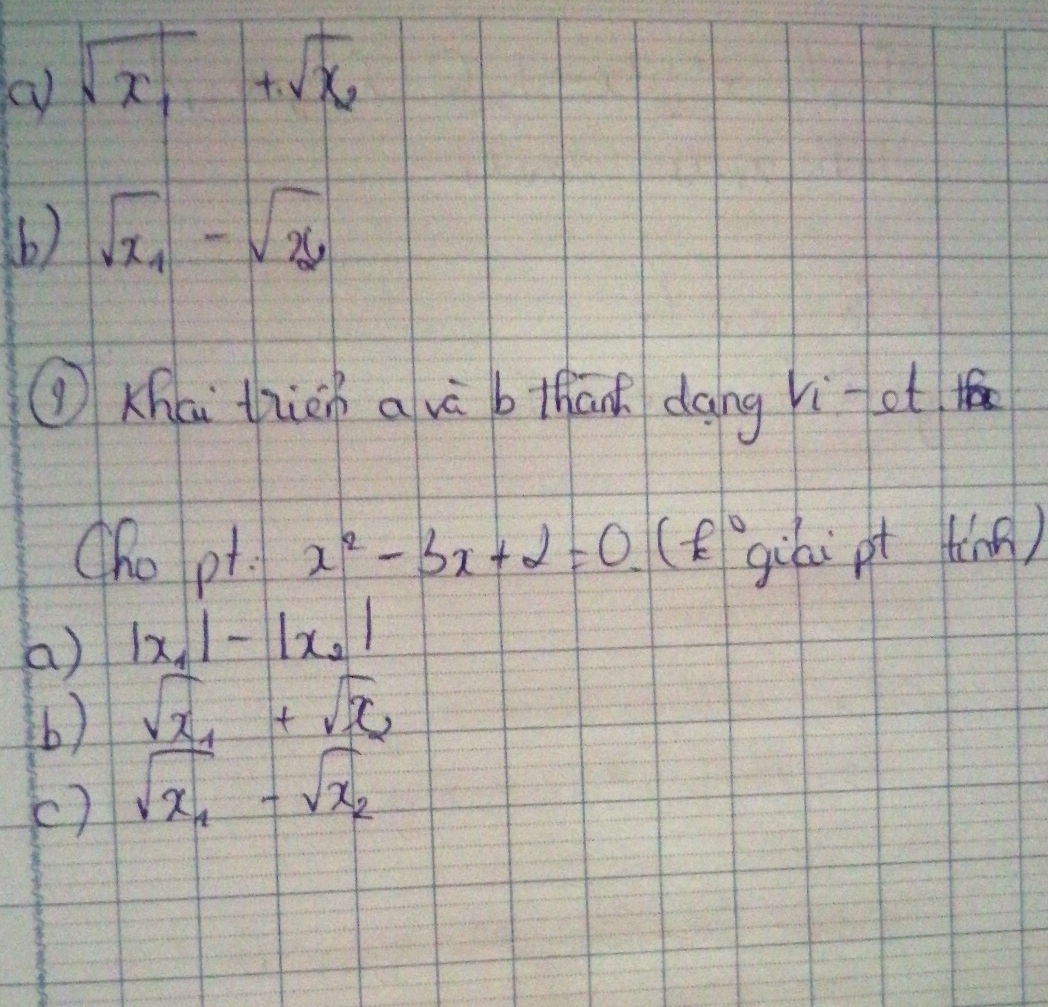 a) √x₁ + √x₂
b) √x₁ - √x₂
① Khai triển a và b thành dạng Vi-et
Cho pt: x² - 3x + 2 = 0. (k° giải pt tính)
a) |x₁| - |x₂|
b) √x₁ + √x₂
c) √x₁ - √x₂